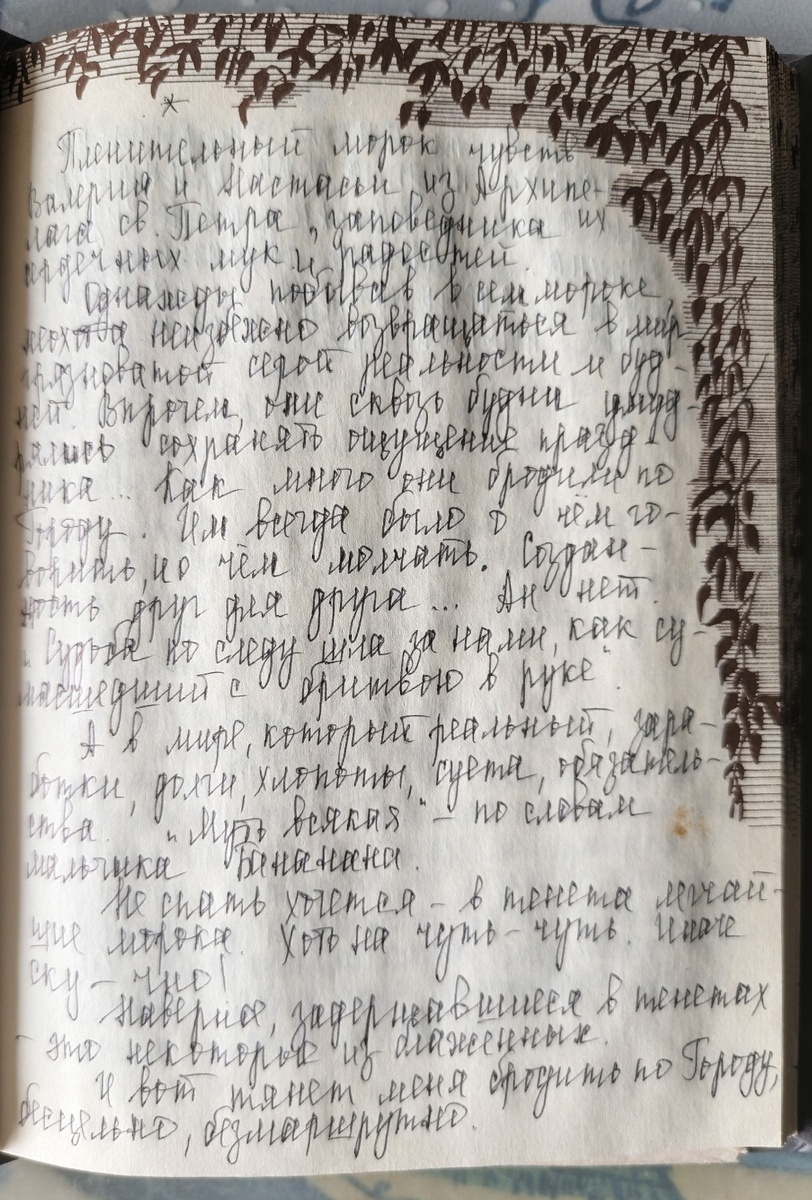 *
Пленительный морок чувств
Валерия и Настасьи из Архипе-
лага св. Петра, заповедника их
сердечных мук и радостей.
Однажды побывав в сем мороке,
неохота неизбежно возвращаться в мир
грязноватой серой реальности и буд-
ней. Впрочем, они сквозь будни умуд-
рялись сохранять ощущение празд-
ника... Как много они бродили по
Городу. Им всегда было о чём го-
ворить, и о чём молчать. Создан-
ность друг для друга... Ан нет.
„Судьба по следу шла за нами, как су-
масшедший с бритвою в руке".
А в мире, который реальный, зара-
ботки, долги, хлопоты, суета, обязатель-
ства. „Муть всякая" – по словам
мальчика Бананана.
Не спать хочется – в тенета легчай-
шие морока. Хоть на чуть-чуть. Иначе
ску-чно!
Наверно, задержавшиеся в тенетах
– это некоторые из блаженных.
И вот тянет меня бродить по Городу,
бесцельно, безмаршрутно.